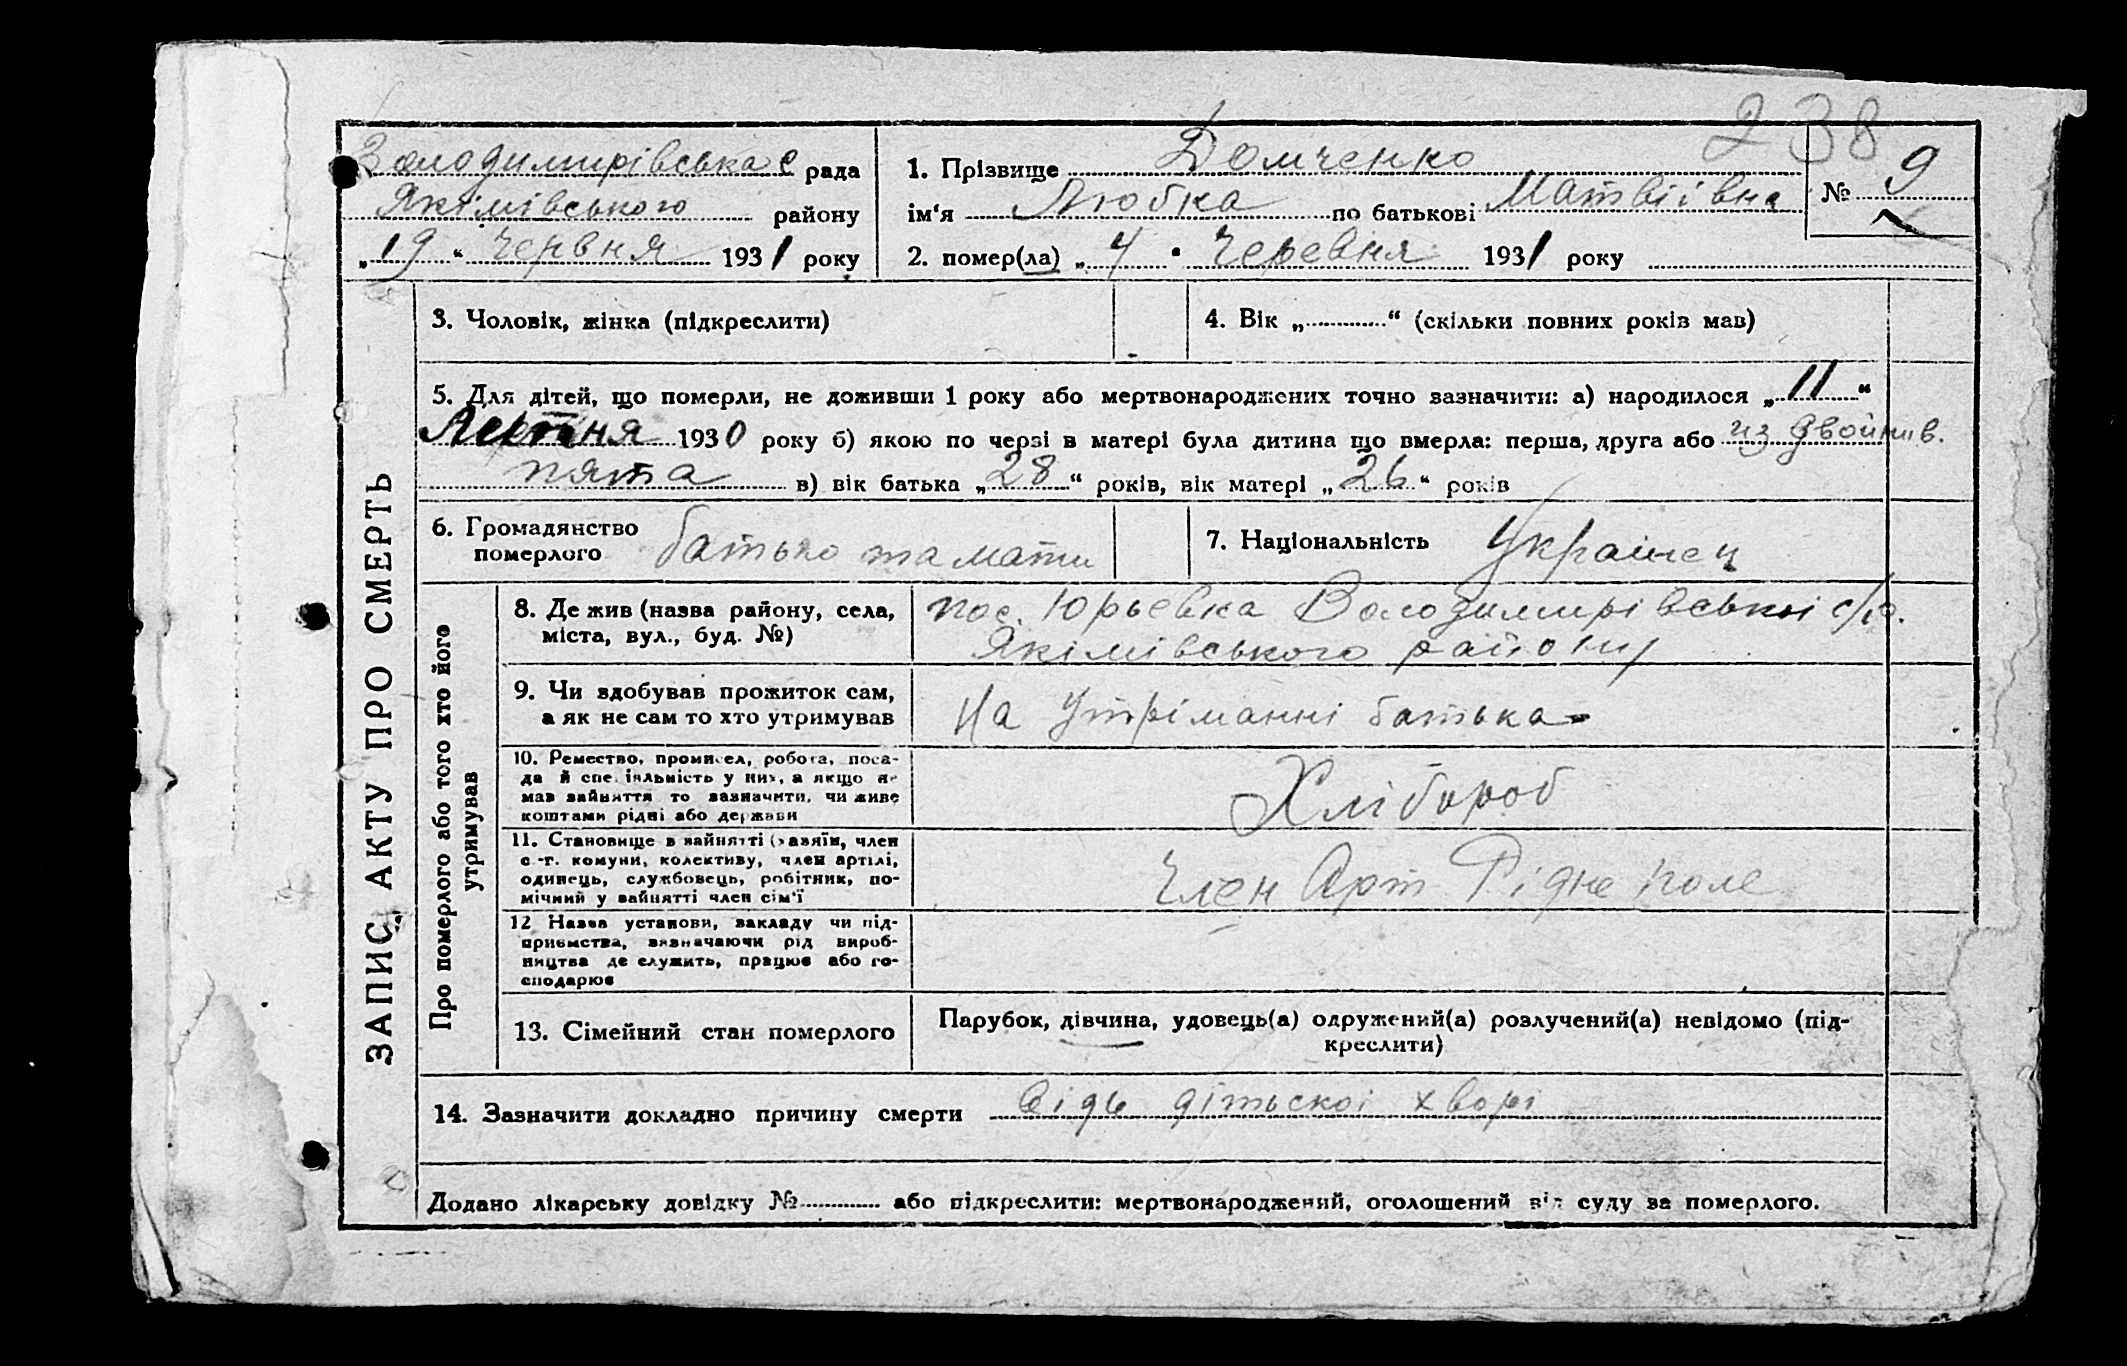 238
Володимирівська с рада
Якімівського району
„19“ Червня 1931 року
1. Прізвище Домченко
ім‘я Любка по батькові Матвіівна
№ 9
2. помер(ла) „4“ Черевня 1931 року
ЗАПИС АКТУ ПРО СМЕРТЬ
3. Чоловік, жінка (підкреслити)
4. Вік „ “ (скільки повних років мав)
5. Для дітей, що померли, не доживши 1 року або мертвонароджених точно зазначити: а) народилося „11“
1930 року б) якою по черзі в матері була дитина що вмерла: перша, друга або из двойнив.
пята в) вік батька „28“ років, вік матері „26“ років
6. Громадянство
померлого батько та мати
7. Національність Українец
Про померлого або того хто його
утримував
8. Де жив (назва району, села,
міста, вул., буд. №)
пос. Юрьевка Володимирівськоі с/р.
Якімівського району
9. Чи здобував прожиток сам,
а як не сам то хто утримував
На утріманні батька
10. Ремество, промисел, робота, поса-
да й спеціяльність у них, а якщо не
мав зайняття то зазначити, чи живе
коштами рідні або держави
Хлібороб
11. Становище в зайнятті (хазяїн, член
с.-г. комуни, колективу, член артілі,
одинець, службовець, робітник, по-
мічний у зайнятті член сім'ї
Член Арт Рідне поле
12 Назва установи, закладу чи під-
приємства, зазначаючи рід вироб-
ництва де служить, працює або го-
сподарює
13. Сімейний стан померлого
Парубок, дівчина, удовець(а) одружений(а) розлучений(а) невідомо (під-
креслити)
14. Зазначити докладно причину смерти відь дітьскоі хворі
Додано лікарську довідку № або підкреслити: мертвонароджений, оголошений від суду за померлого.